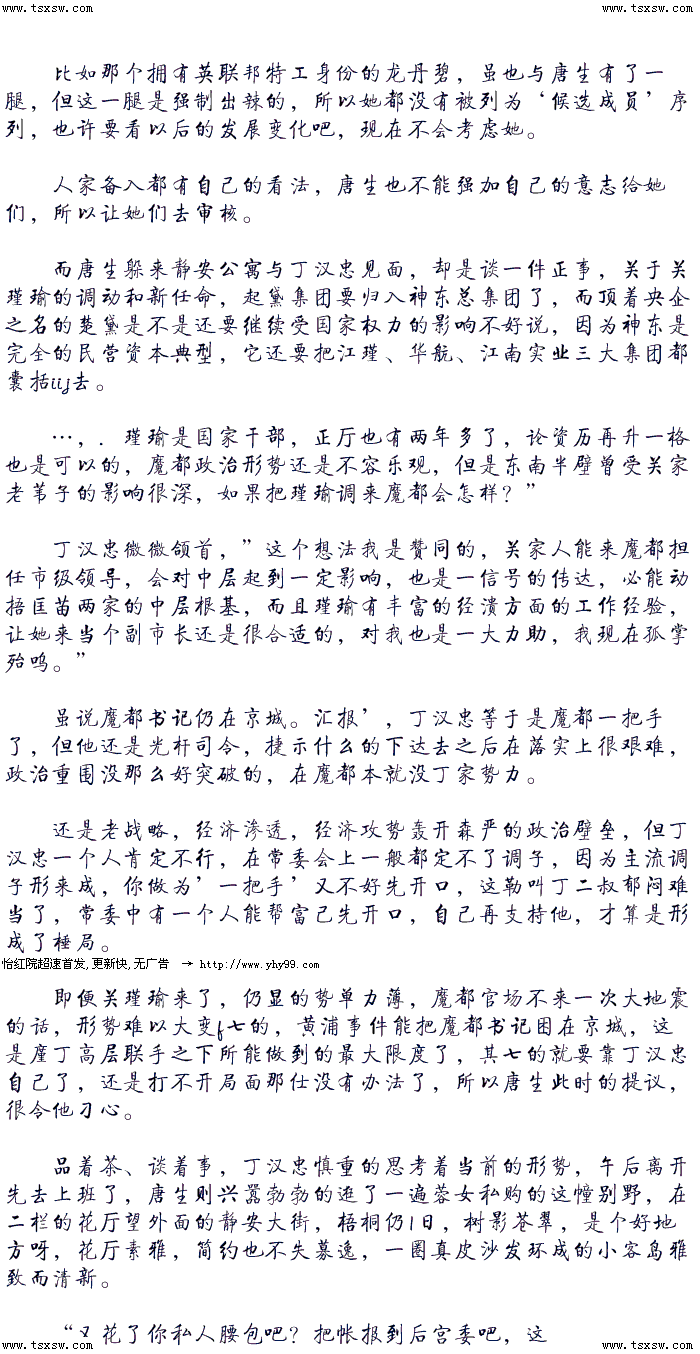 www.tsxsw.com www.tsxsw.com
比如那个拥有英联邦特工身份的龙丹碧，虽也与唐生有了一
腿，但这一腿是强制出辣的，所以她都没有被列为‘候选成员’序
列，也许要看以后的发展变化吧，现在不会考虑她。
人家备入都有自己的看法，唐生也不能强加自己的意志给她
们，所以让她们去审核。
而唐生躲来静安公寓与丁汉忠见面，却是谈一件正事，关于关
瑾瑜的调动和新任命，起黛集团要归入神东总集团了，而顶着央企
之名的楚黛是不是还要继续受国家权力的影响不好说，因为神东是
完全的民营资本典型，它还要把江瑾、华航、江南实业三大集团都
囊括iij去。
…，．瑾瑜是国家干部，正厅也有两年多了，论资历再升一格
也是可以的，魔都政治形势还是不容乐观，但是东南半壁曾受关家
老苇子的影响很深，如果把瑾瑜调来魔都会怎样？”
丁汉忠微微颌首，”这个想法我是赞同的，关家人能来魔都担
任市级领导，会对中层起到一定影响，也是一信号的传达，必能动
捂匡苗两家的中层根基，而且瑾瑜有丰富的经溃方面的工作经验，
让她来当个副市长还是很合适的，对我也是一大力助，我现在孤掌
殆鸣。”
虽说魔都书记仍在京城。汇报’，丁汉忠等于是魔都一把手
了，但他还是光杆司令，捷示什么的下达去之后在落实上很艰难，
政治重围没那么好突破的，在魔都本就没丁家势力。
还是老战略，经济渗透，经济攻势轰开森严的政治壁垒，但丁
汉忠一个人肯定不行，在常委会上一般都定不了调子，因为主流调
子形来成，你做为’一把手’又不好先开口，这勒叫丁二叔郁闷难
当了，常委中有一个人能帮富己先开口，自己再支持他，才算是形
成了棰局。
怡红院超速首发,更新快,无广告 → http://www.yhy99.com
即便关瑾瑜来了，仍显的势单力薄，魔都官场不来一次大地震
的话，形势难以大变f七的，黄浦事件能把魔都书记困在京城，这
是廑丁高层联手之下所能做到的最大限度了，其七的就要靠丁汉忠
自己了，还是打不开局面那仕没有办法了，所以唐生此时的提议，
很令他刁心。
品着茶、谈着事，丁汉忠慎重的思考着当前的形势，午后离开
先去上班了，唐生则兴嚣勃勃的逛了一遍蓉女私购的这幢别野，在
二栏的花厅望外面的静安大街，梧桐仍1日，树影苍翠，是个好地
方呀，花厅素雅，简约也不失募逸，一圈真皮沙发环成的小客岛雅
致而清新。
“又花了你私人腰包吧？把帐报到后宫委吧，这
www.tsxsw.com www.tsxsw.com